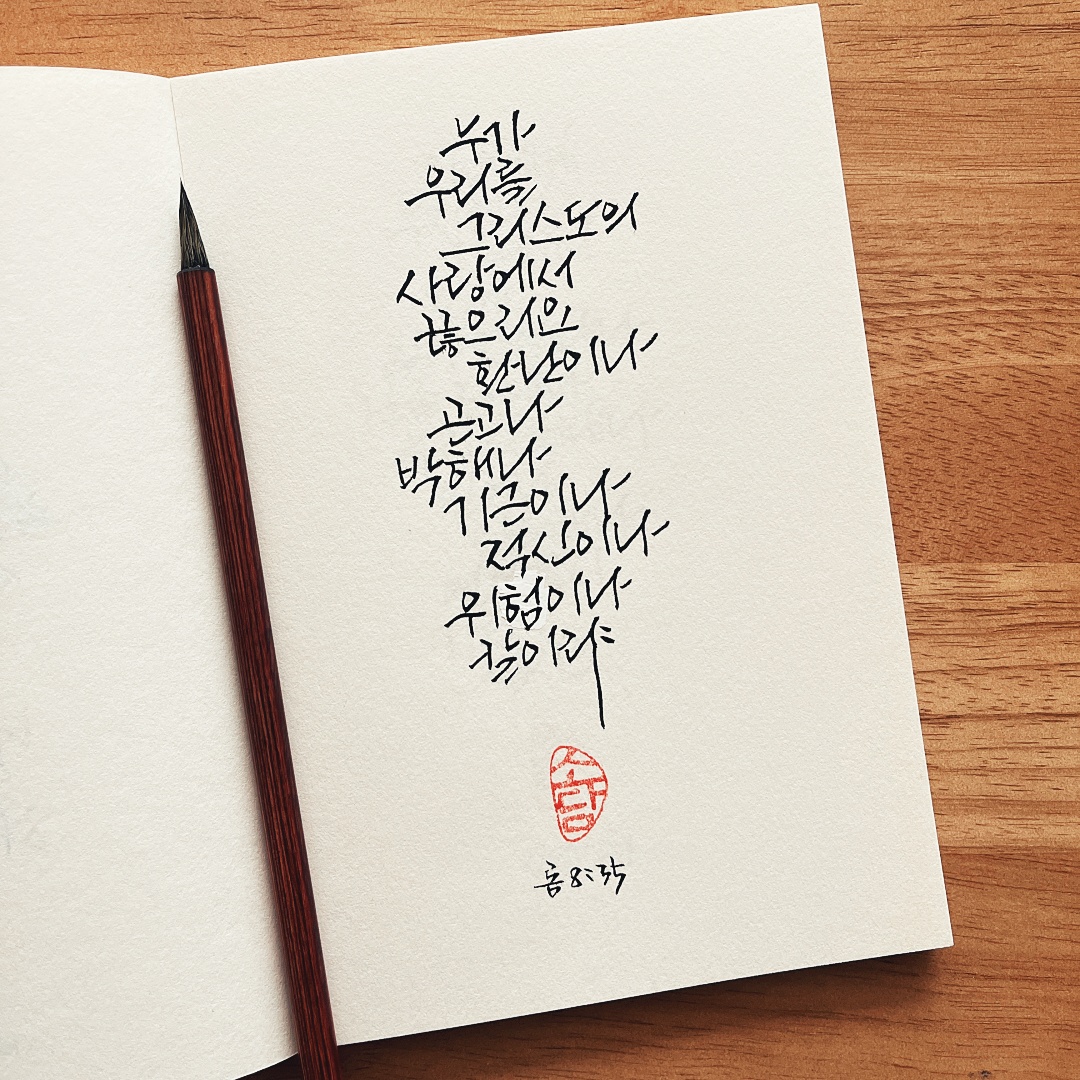 누가
우리를
그리스도의
사랑에서
끊으리요
환난이나
곤고나
박해나
기근이나
적신이나
위험이나
칼이랴
솔람
롬 8:35